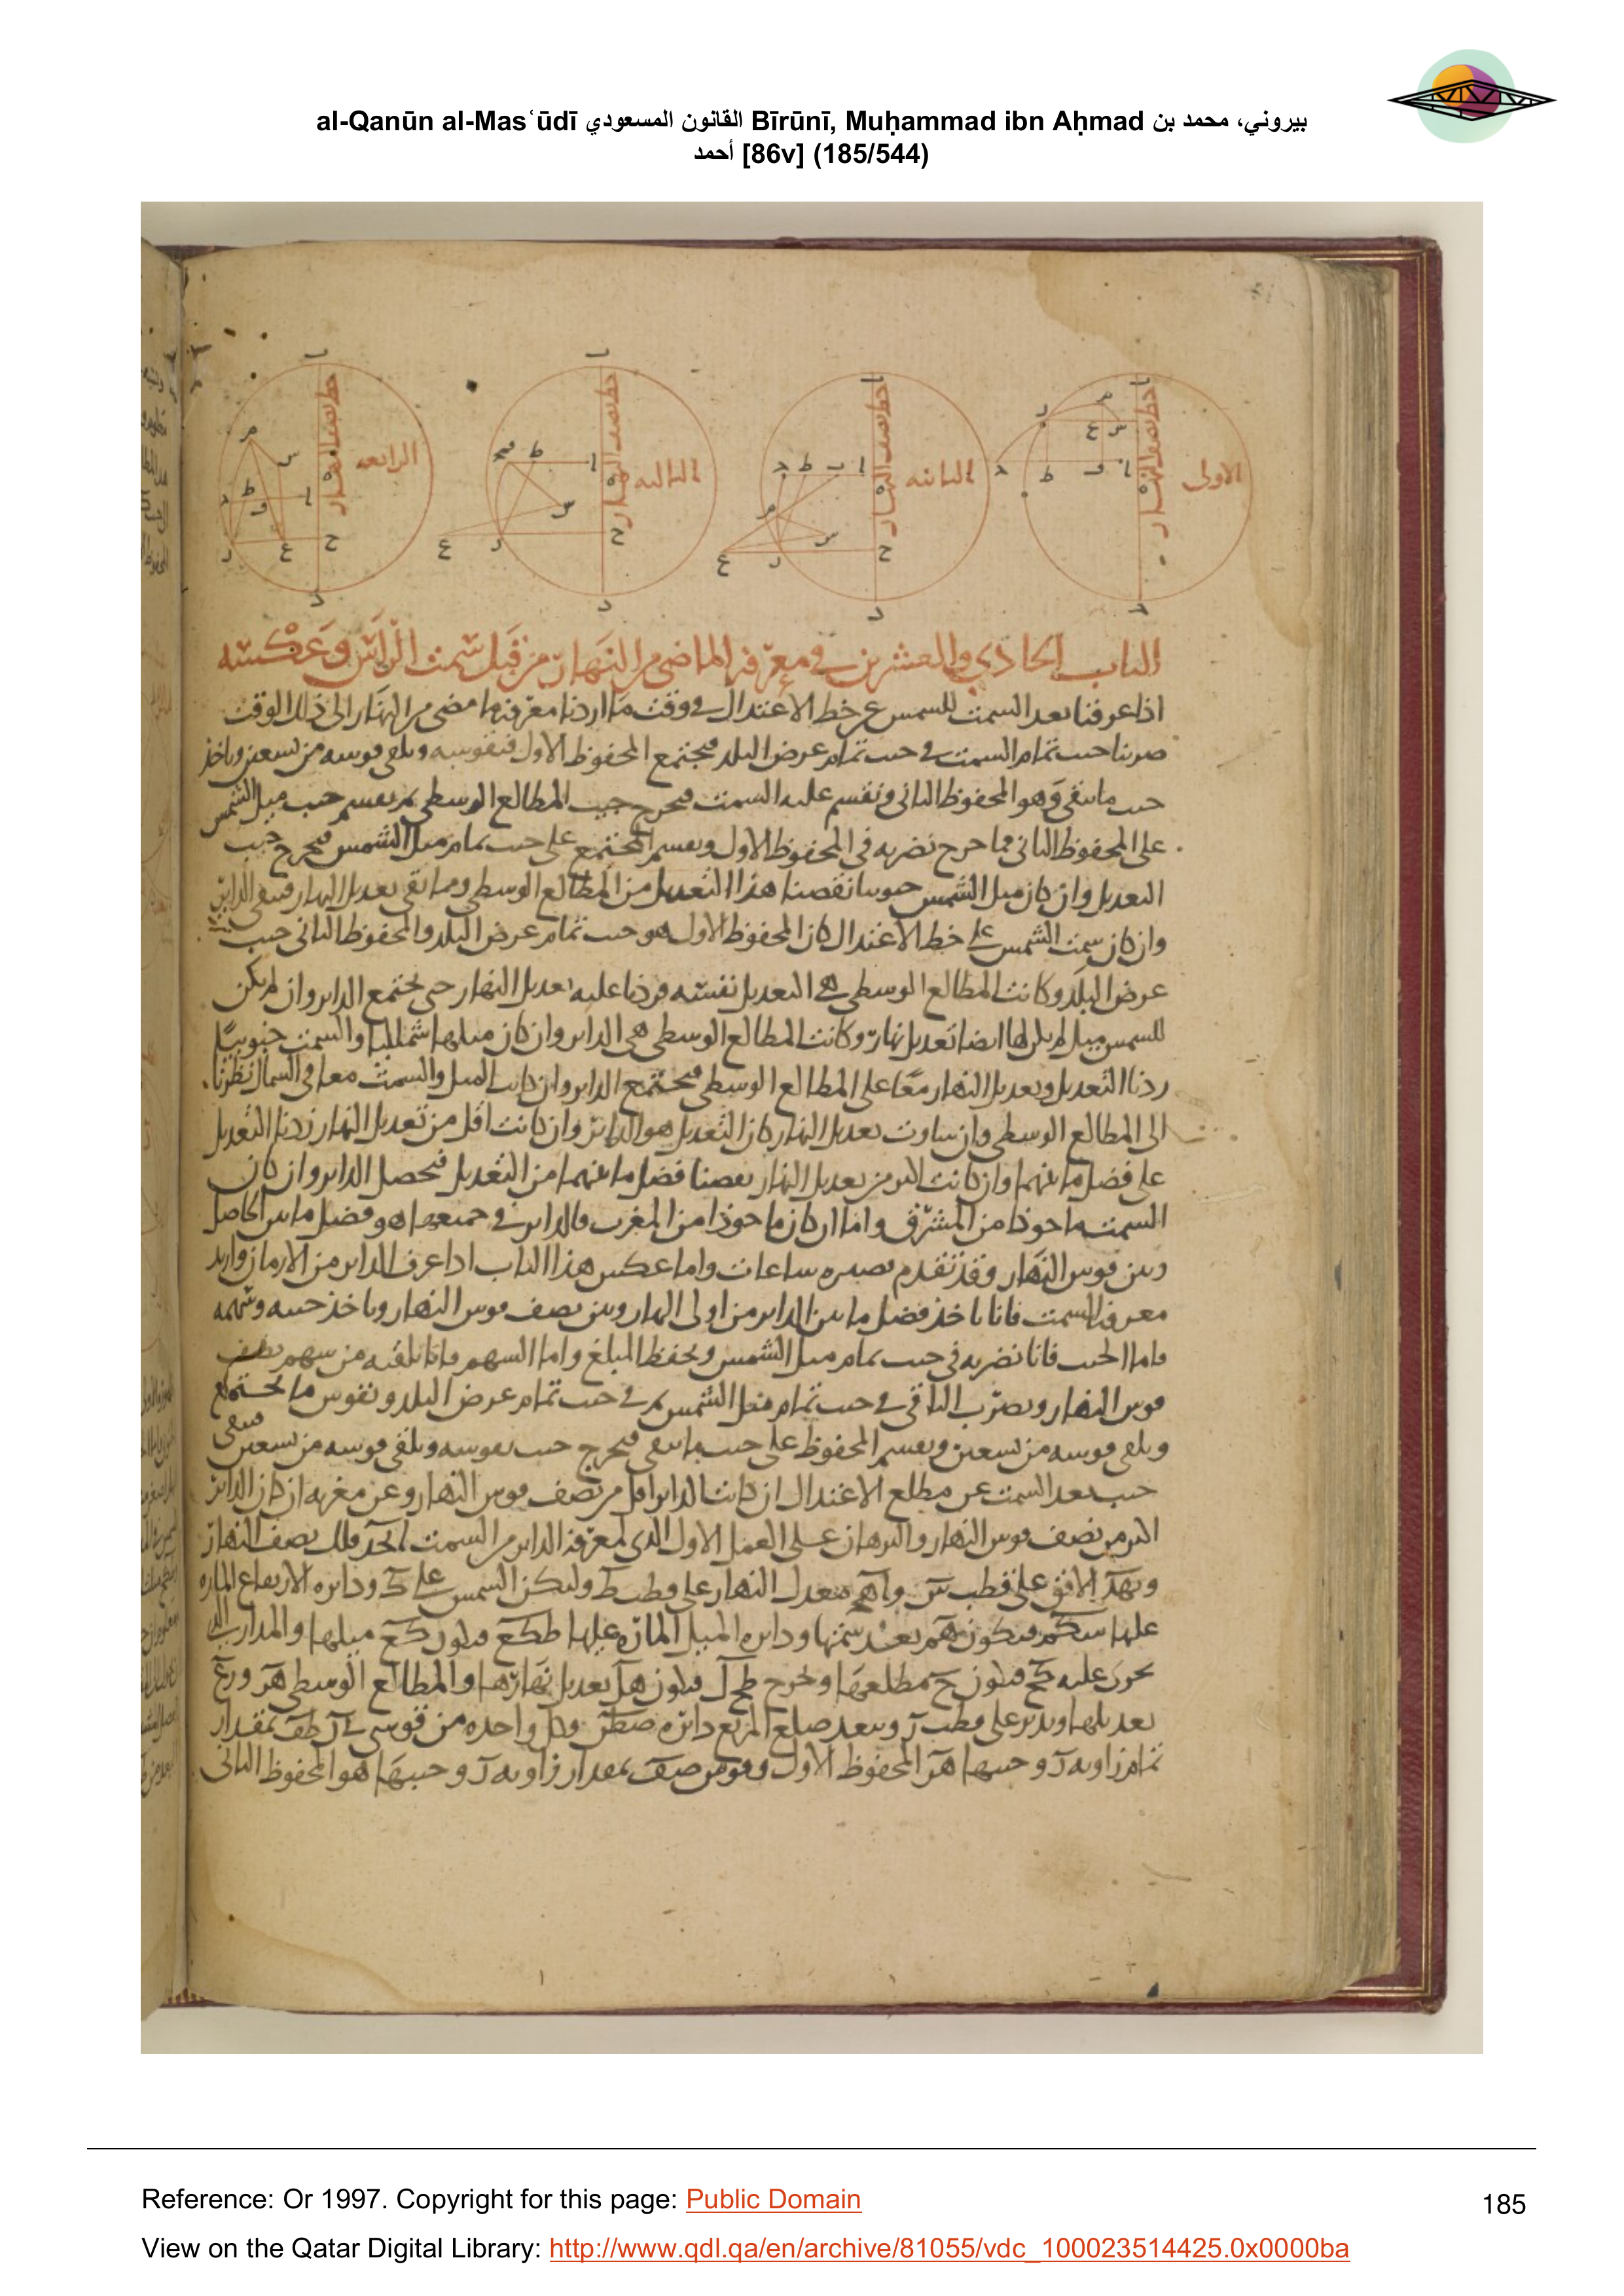 al-Qanūn al-Masʿūdī القانون المسعودي Bīrūnī, Muḥammad ibn Aḥmad بيروني، محمد بن
أحمد [86v] (185/544)
الاولى
الثانية
الثالثة
الرابعة
خط نصف النهار
خط نصف النهار
خط نصف النهار
خط نصف النهار
الباب الحادي والعشرين في معرفة الماضي من النهار من قبل سمت الراس وعكسه
اذا عرفنا بعد السمت للشمس عن خط الاعتدال في وقت ما اردنا معرفة ما مضى من النهار الى ذلك الوقت
ضربنا جيب تمام السمت في جيب تمام عرض البلد فيجتمع المحفوظ الاول فنقوسه ونلقي قوسه من تسعين وناخذ
جيب ما بقي وهو المحفوظ الثاني ونقسم عليه السمت فيخرج جيب المطالع الوسطى ثم نقسم جيب ميل الشمس
على المحفوظ الثاني فما خرج نضربه في المحفوظ الاول ونقسم المجتمع على جيب تمام ميل الشمس فيخرج جيب
التعديل وان كان ميل الشمس جنوبيا نقصنا هذا التعديل من المطالع الوسطى ومما بقي تعديل النهار فيبقى الداير
وان كان سمت الشمس على خط الاعتدال كان المحفوظ الاول هو جيب تمام عرض البلد والمحفوظ الثاني جيب
عرض البلد وكانت المطالع الوسطى هي التعديل نفسه فزدنا عليه تعديل النهار حتى يجتمع الداير وان لم يكن
للشمس ميل لم يكن لها ايضا تعديل نهار وكانت المطالع الوسطى هي الداير وان كان ميلها شماليا والسمت جنوبيا
زدنا التعديل وتعديل النهار معا على المطالع الوسطى فيجتمع الداير وان كانت الميل والسمت معا في الشمال نظرنا
الى المطالع الوسطى وان ساوت تعديل النهار كان التعديل هو الداير وان كانت اقل من تعديل النهار زدنا التعديل
على فضل ما بينهما وان كانت اكثر من تعديل النهار نقصنا فضل ما بينهما من التعديل فيحصل الداير وان كان
السمت ماخوذا من المشرق واما ان كان ماخوذا من المغرب فالداير في جميعها هو فضل ما بين الحاصل
وبين قوس النهار وقد تقدم تصيره ساعات واما عكس هذا الباب اذا عرف الداير من الازمان واريد
معرفة السمت فانا ناخذ فضل ما بين الداير من اول النهار وبين نصف قوس النهار وناخذ جيبه وسهمه
فاما الجيب فانا نضربه في جيب تمام ميل الشمس ونحفظ المبلغ واما السهم فانا نلقيه من سهم نصف
قوس النهار ونضرب الباقي في جيب تمام ميل الشمس ثم في جيب تمام عرض البلد ونقوس ما يجتمع
ونلقي قوسه من تسعين ونقسم المحفوظ على جيب ما بقي فيخرج جيب نقوسه ونلقي قوسه من تسعين فيبقى
جيب بعد السمت عن مطلع الاعتدال ان كانت الداير اقل من نصف قوس النهار وعن مغربه ان كان الداير
اكثر من نصف قوس النهار والبرهان على العمل الاول الذي لمعرفة الداير من السمت فلك نصف النهار
الافق على قطب معدل النهار على قطب ط وليكن الشمس على ك ودائرة الارتفاع المارة
عليها فيكون بعد سمتها ودائرة الميل المارة عليها طكع فيكون كع ميلها والمدار الذي
تحرك عليه فيكون ح مطلعها ونخرج فيكون تعديل نهارها والمطالع الوسطى
تعديلها وندير على قطب ر وببعد ضلع المربع دائرة وكل واحدة من قوسي بمقدار
تمام زاوية ر وجيبها هو المحفوظ الاول وقوس بمقدار زاوية ر وجيبها هو المحفوظ الثاني
Reference: Or 1997. Copyright for this page: Public Domain
185
View on the Qatar Digital Library: http://www.qdl.qa/en/archive/81055/vdc_100023514425.0x0000ba